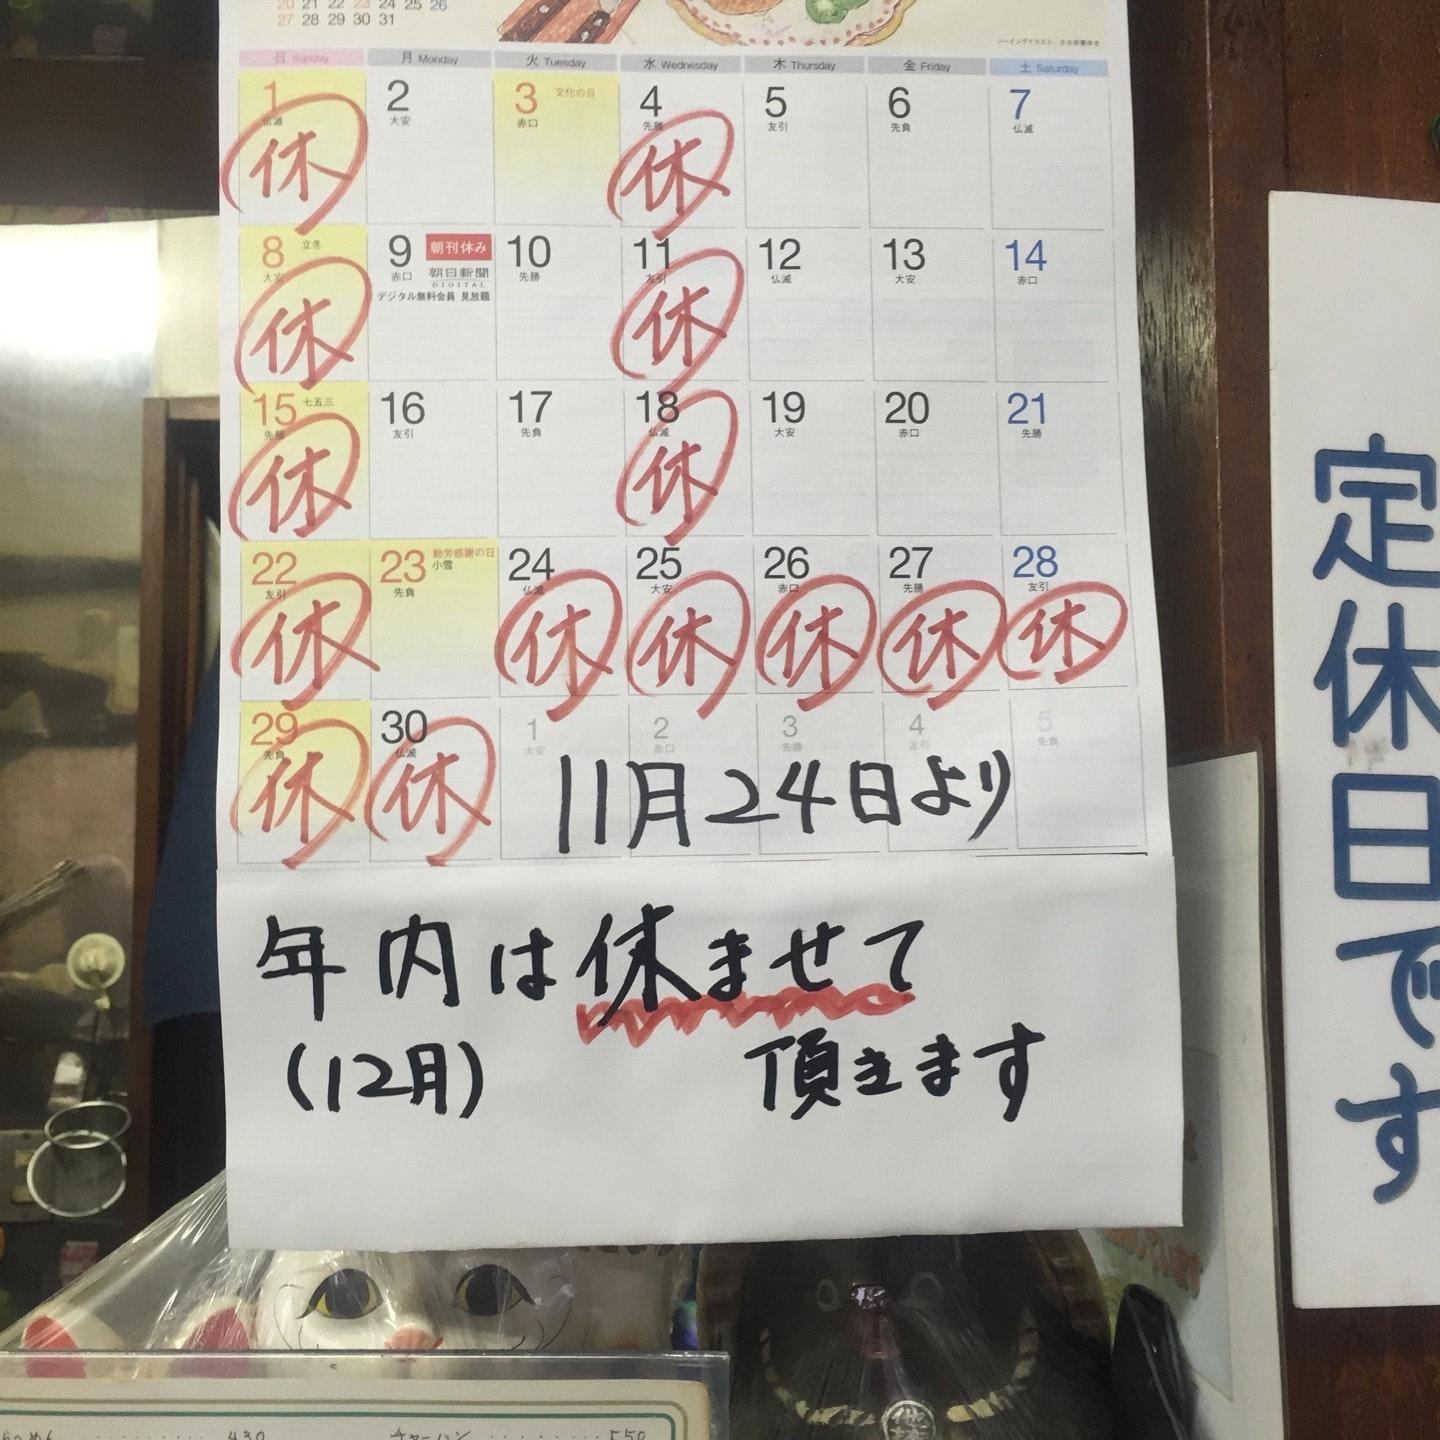 20 21 22 23 24 25 26
27 28 29 30 31
日 Sunday 月 Monday 火 Tuesday 水 Wednesday 木 Thursday 金 Friday 土 Saturday
1 2 3 文化の日 4 5 6 7
仏滅 大安 赤口 先勝 友引 先負 仏滅
休 休
8 立冬 9 朝刊休み 10 11 12 13 14
大安 赤口 朝日新聞 先勝 友引 仏滅 大安 赤口
DIGITAL
デジタル無料会員 見放題
休 休
15 七五三 16 17 18 19 20 21
先勝 友引 先負 仏滅 大安 赤口 先勝
休 休
22 23 勤労感謝の日 24 25 26 27 28
小雪
友引 先負 仏滅 大安 赤口 先勝 友引
休 休 休 休 休 休
29 30 1 2 3 4 5
先負 仏滅 大安 赤口 先勝 友引 先負
休 休
11月24日より
年内は休ませて
(12月) 頂きます
定休日です
430 チャーハン 550